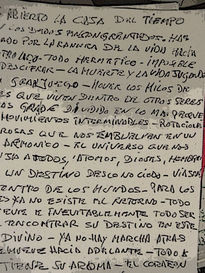 ABIERTO LA CASA DEL TIEMPO
LOS DONES ENSANGRENTADOS - HAS
LA RANURA DE LA VIDA HACIA
TODO HERMÉTICO - IMPOSIBLE
DESCIFRAR - LA MUERTE Y LA VIDA JUGANDO
GRAN JUEGO - MOVER LOS HILOS DE
ES QUE VIVEN DENTRO DE OTROS SERES
MAS GRANDE DA VIDA EN LO MAS PEQUE
MOVIMIENTOS INTERMINABLES - ROTACIONES
ROSAS QUE NOS ENVUELVEN EN UN
ARMONICO - EL UNIVERSO QUE NOS
A TODOS, ATOMOS, DIOSES, HOMBRES
UN DESTINO DESCONOCIDO - VIAJAN
DENTRO DE LOS MUNDOS - PARA LOS
YA NO EXISTE EL RETORNO - TODO
E INEVITABLEMENTE TODO SER
ENCONTRAR SU DESTINO EN ESTE
DIVINO - YA NO HAY MARCHA ATRAS
HACIA ADELANTE - TODO
TIENE SU AROMA - EL CORAZON